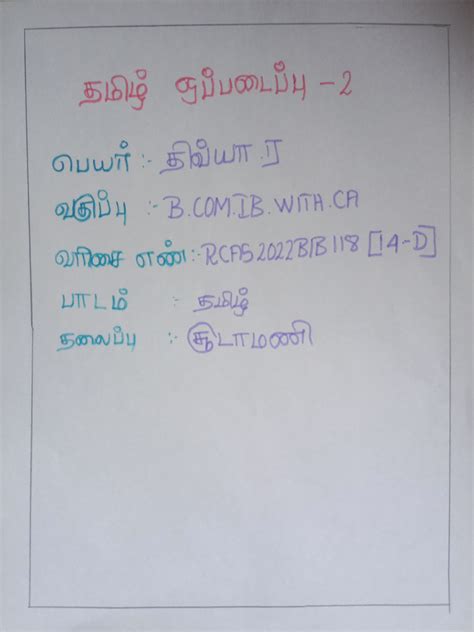 தமிழ் ஒப்படைப்பு - 2
பெயர் :- திவ்யா.ர
வகுப்பு :- B.COM.IB.WITH.CA
வரிசை எண் :- RCAS2022BIB118 [14-D]
பாடம் :- தமிழ்
தலைப்பு :- சூடாமணி